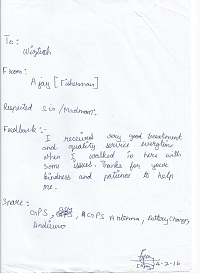 To:
Wiztech
From:
Ajay [Fisherman]
Respected Sir/Madmom:
Feedback:-
I received very good treatment
and quality service everytime
when I walked in here with
some issues. Thanks for your
kindness and patience to help
me.
Spare:
GPS, GPS Antenna, battery charger,
-2-16